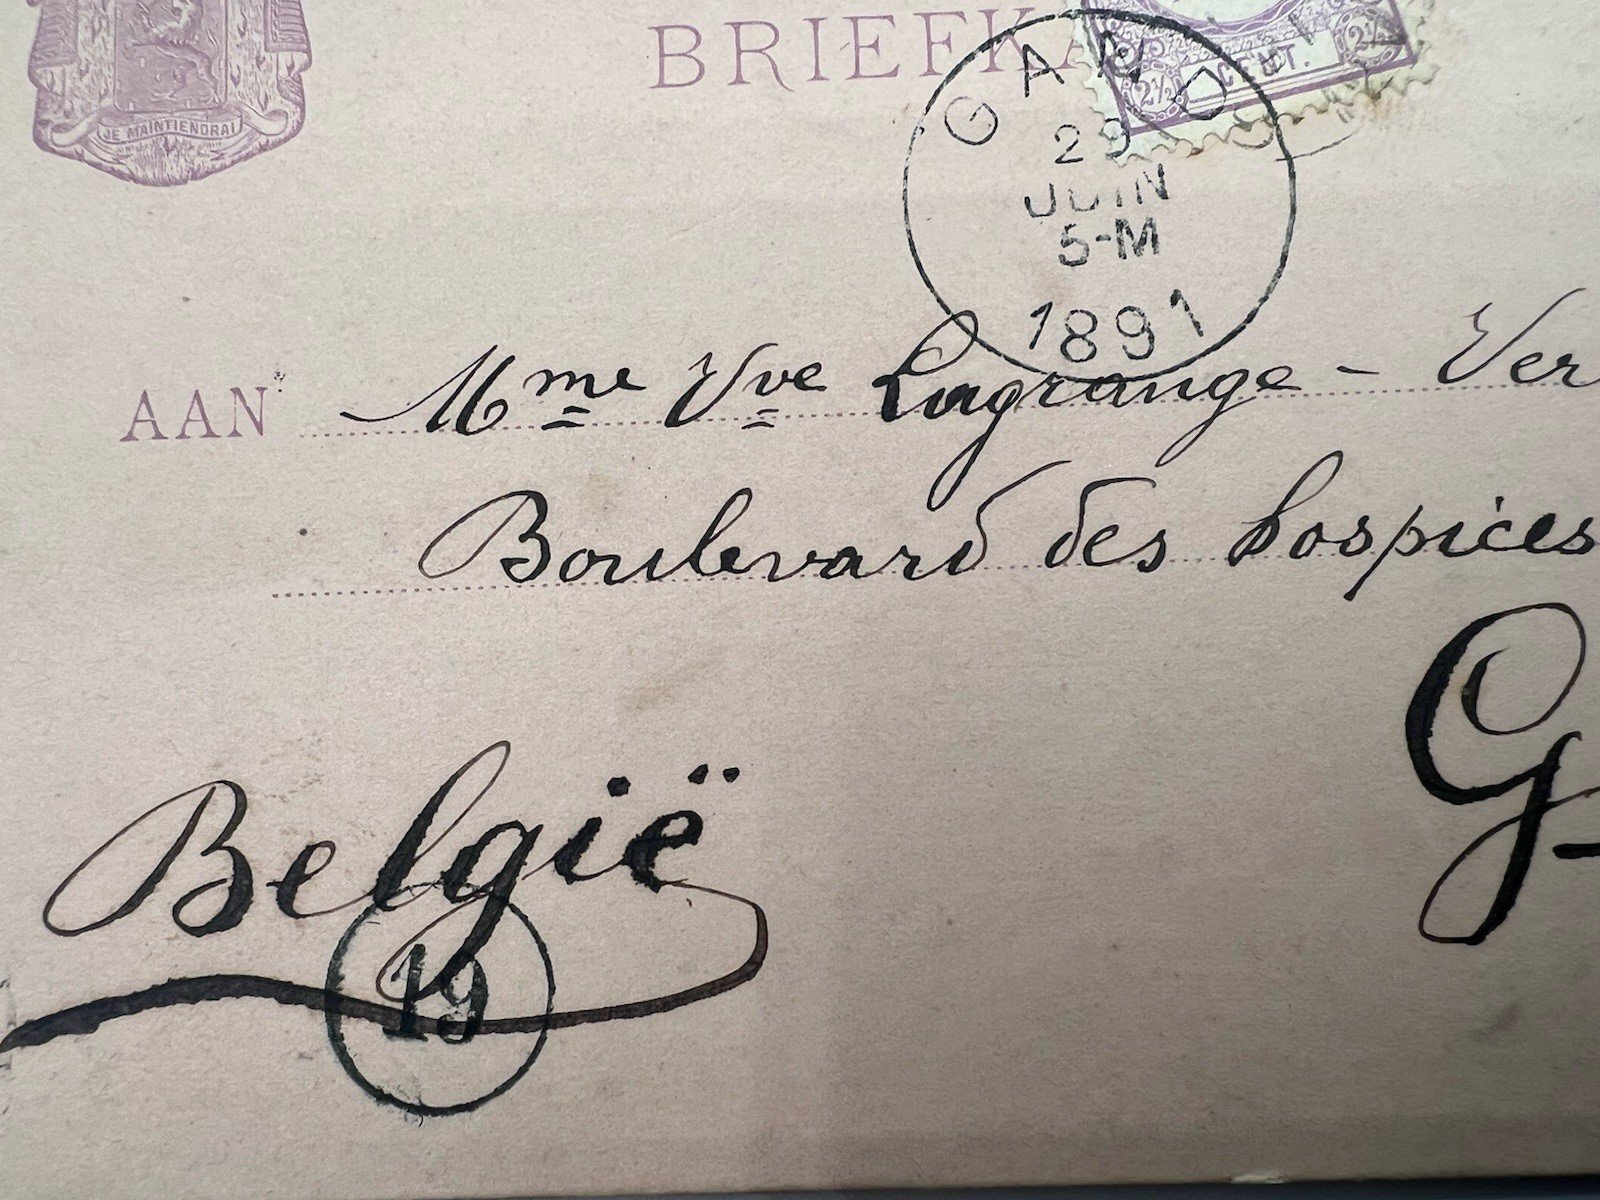 JE MAINTIENDRAI
BRIEFKA
2½ CENT. 2½
GAND
29
JUIN
5-M
1891
AAN Mme Vve Lagrange - Ver
Boulevard des hospices
G
België
19